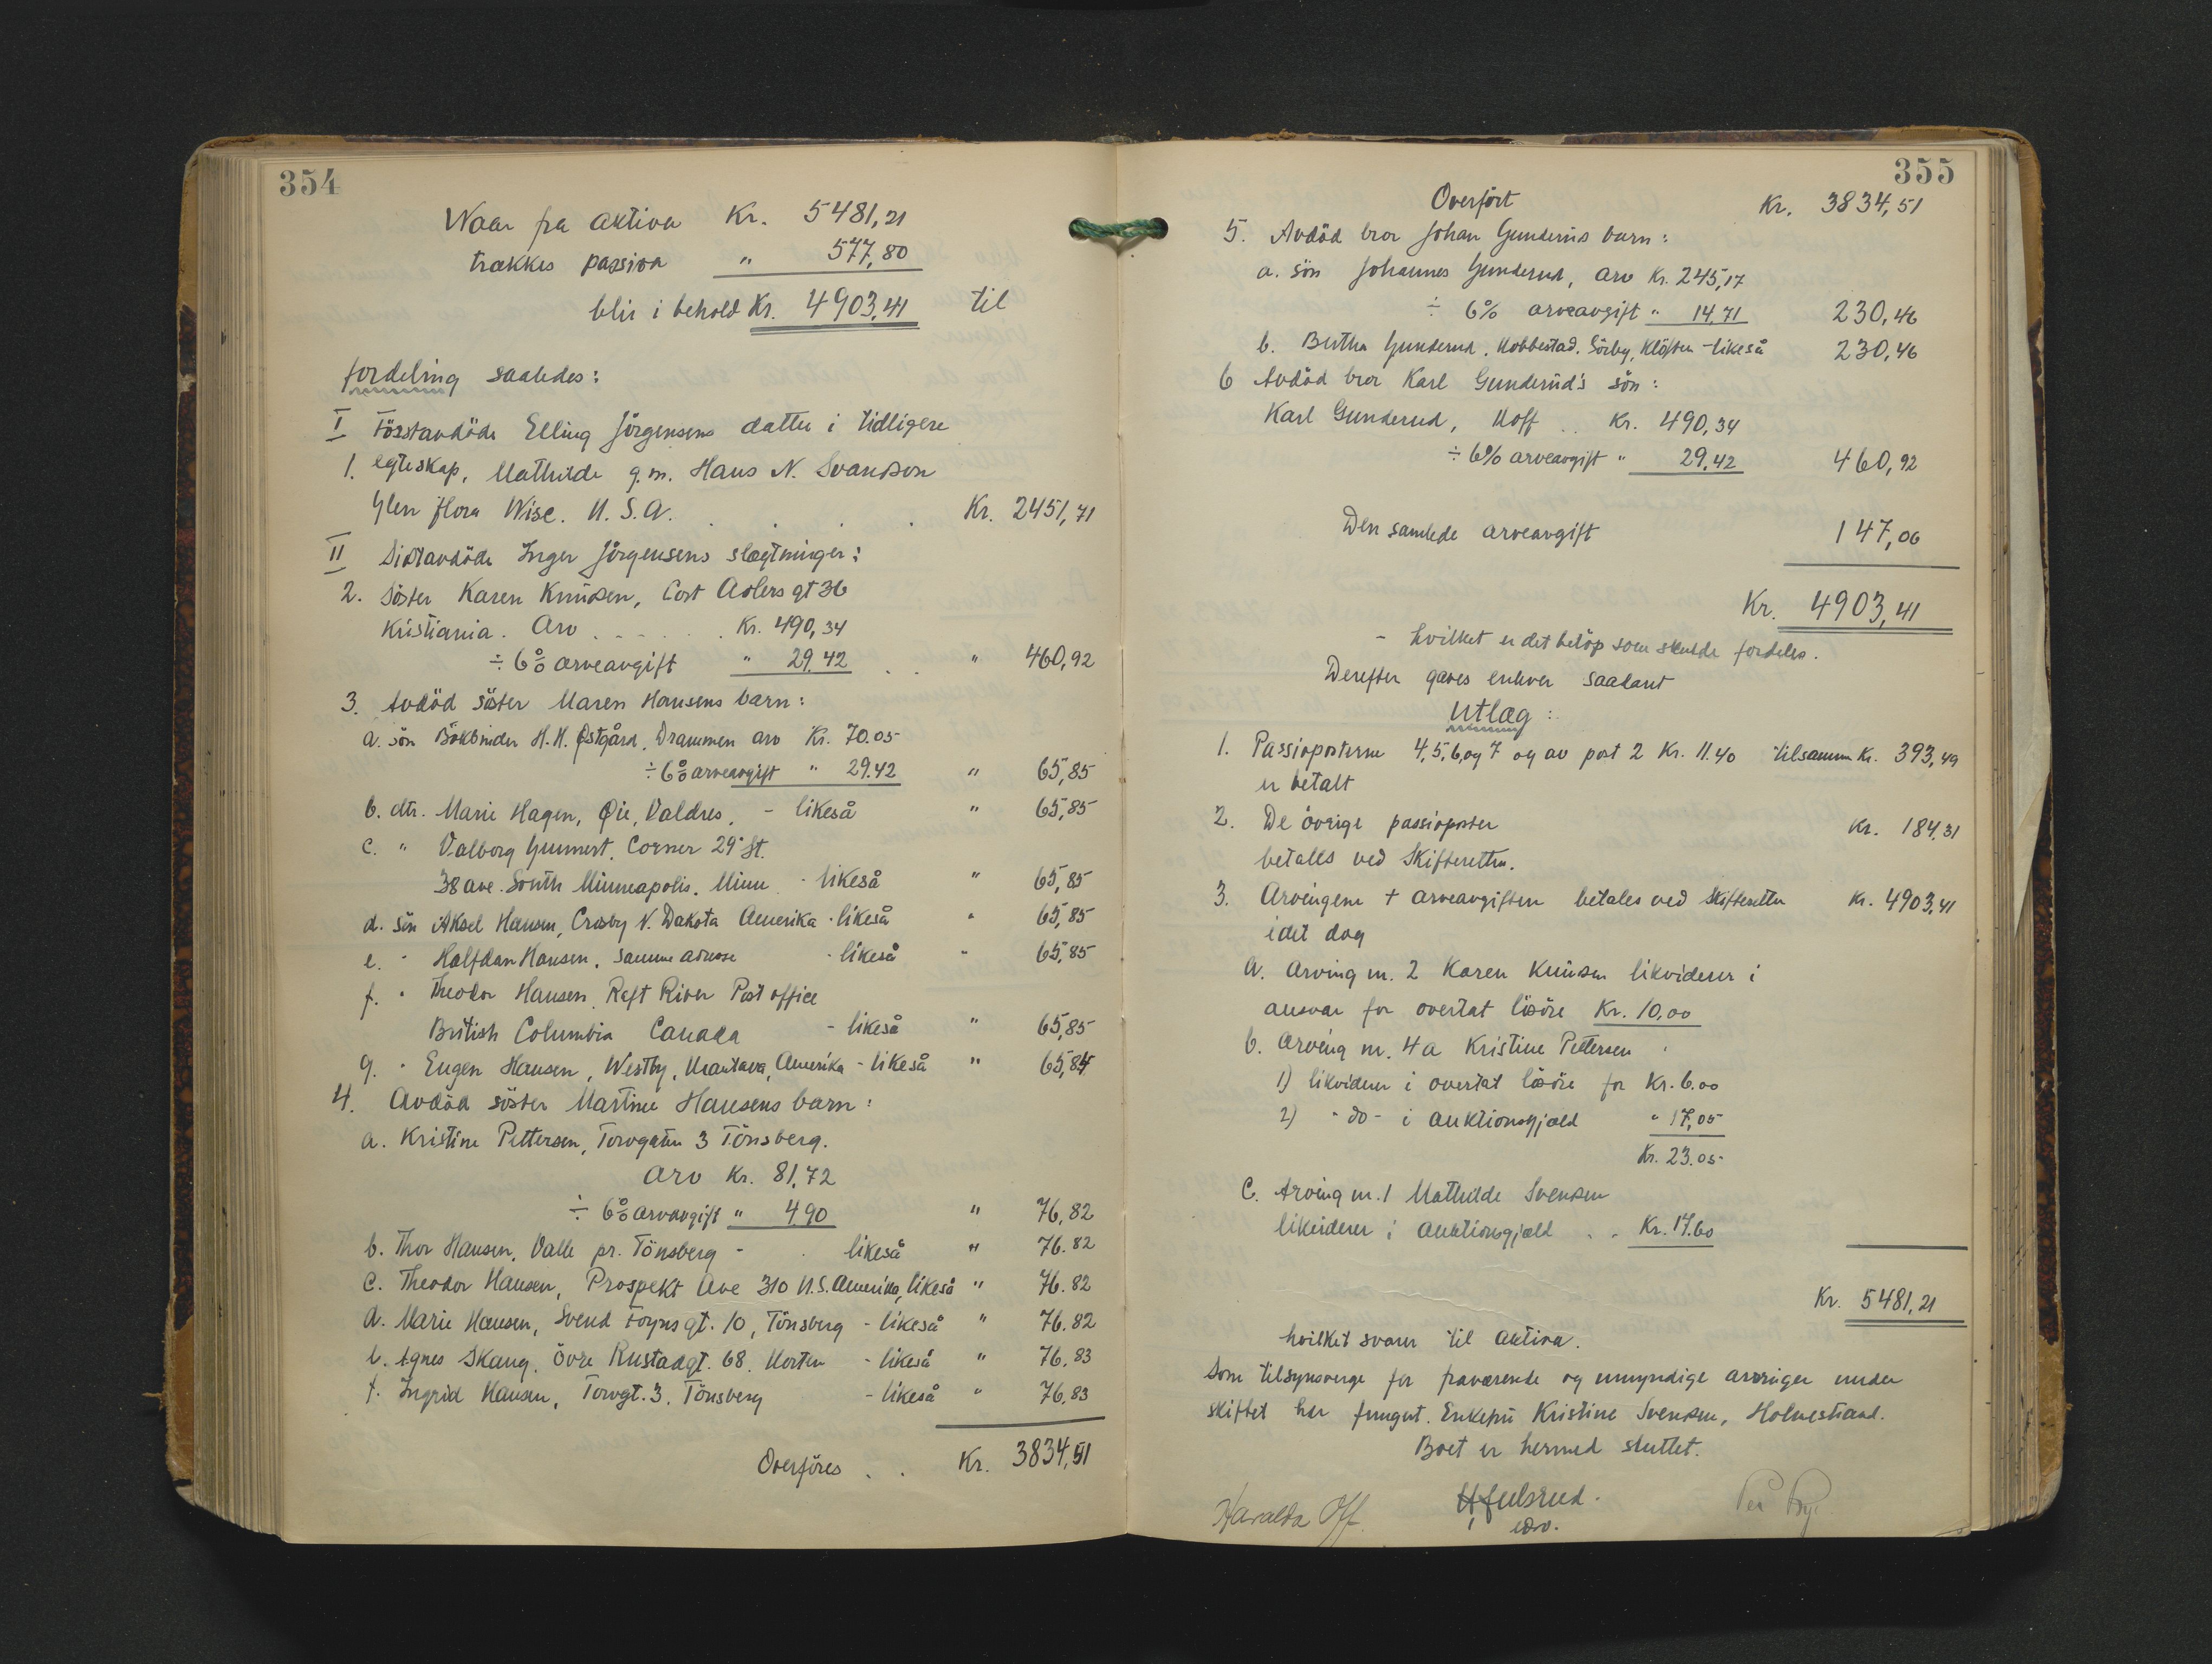 354
Naar fra aktiva Kr. 5481,21
trækkes passiva " 577,80
blir i behold Kr. 4903,41 til
fordeling saaledes:
I Förstavdöde Elling Jörgensens datter i tidligere
1. egteskap, Mathilde g.m. Hans N. Svandson
Glen flora Wisc. U.S.A. . . . . Kr. 2451,71
II Sistavdöde Inger Jörgensens slægtninger:
2. Söster Karen Knudsen, Cort Adlers gt 36
Kristiania. Arv . . . . . Kr. 490,34
÷ 6% arveavgift " 29.42 . . " 460,92
3. Avdöd söster Maren Hansens barn:
a. sön Bökbinder H.H. Østgård, Drammen arv Kr. 70.05
÷ 6% arveavgift " 29.42 " 65,85
b. dtr. Marie Hagen, Øie, Valdres, - likeså " 65,85
c. " Valborg Gunnert, Corner 29' St.
38 ave. South Minneapolis. Minn - likeså " 65,85
d. sön Aksel Hansen, Crosby N. Dakota Amerika - likeså " 65,85
e. " Halfdan Hansen, samme adresse - likeså " 65,85
f. " Theodor Hansen Raft River Post office
British Columbia Canada - likeså " 65,85
g. " Eugen Hansen, Westby, Mantana, Amerika - likeså " 65,84
4. Avdöd söster Martine Hansens barn:
a. Kristine Pettersen, Torvgaten 3 Tönsberg.
arv Kr. 81,72
÷ 6% arveavgift " 4.90 " 76,82
b. Thor Hansen, Valle pr. Tönsberg - likeså " 76.82
c. Theodor Hansen, Prospekt Ave 310 U.S. Amerika, likeså " 76.82
d. Marie Hansen, Svend Foynsgt. 10, Tönsberg - likeså " 76.82
e. Agnes Skaug, Övre Rustadgt. 68. Horten - likeså " 76,83
f. Ingrid Hansen, Torvgt. 3. Tönsberg - likeså " 76,83
Overföres . . Kr. 3834,51
355
Overfört Kr. 3834,51
5. Avdöd bror Johan Gunderuds barn:
a. sön Johannes Gunderud, arv Kr. 245,17
÷ 6% arveavgift " 14,71 230,46
b. Bertha Gunderud, Hobbestad, Sörby, Klöften - likeså 230,46
6 Avdöd bror Karl Gunderud's sön:
Karl Gunderud, Hoff . . Kr. 490,34
÷ 6% arveavgift " 29,42 460,92
Den samlede arveavgift 147,06
Kr. 4903,41
- hvilket er det belöp som skulde fordeles.
Derefter gaves enhver saadant
Utlæg:
1. Passivposterne 4,5,6, og 7 og av post 2 Kr. 11.40 tilsamm Kr. 393,49
er betalt
2. De övrige passivposter Kr. 184,31
betales ved Skifteretten.
3. Arvingene + arveavgiften betales ved skifteretten Kr. 4903,41
idet dog
a. Arving nr. 2 Karen Knudsen likviderer i
ansvar for overtat lösöre Kr. 10,00
b. Arving nr. 4a Kristine Pettersen
1) likviderer i overtat lösöre for Kr. 6.00
2) - do - i auktionsgjæld " 17,05
Kr. 23.05
c. Arving nr. 1 Mathilde Svensen
likviderer i auktionsgjæld . . Kr. 17.60
Kr. 5481,21
hvilket svarer til aktiva.
Som tilsynsverge for fraværende og umyndige arvinger under
skiftet har fungert Enkefru Kristine Svensen, Holmestrand.
Boet er hermed sluttet.
Haralda Off.